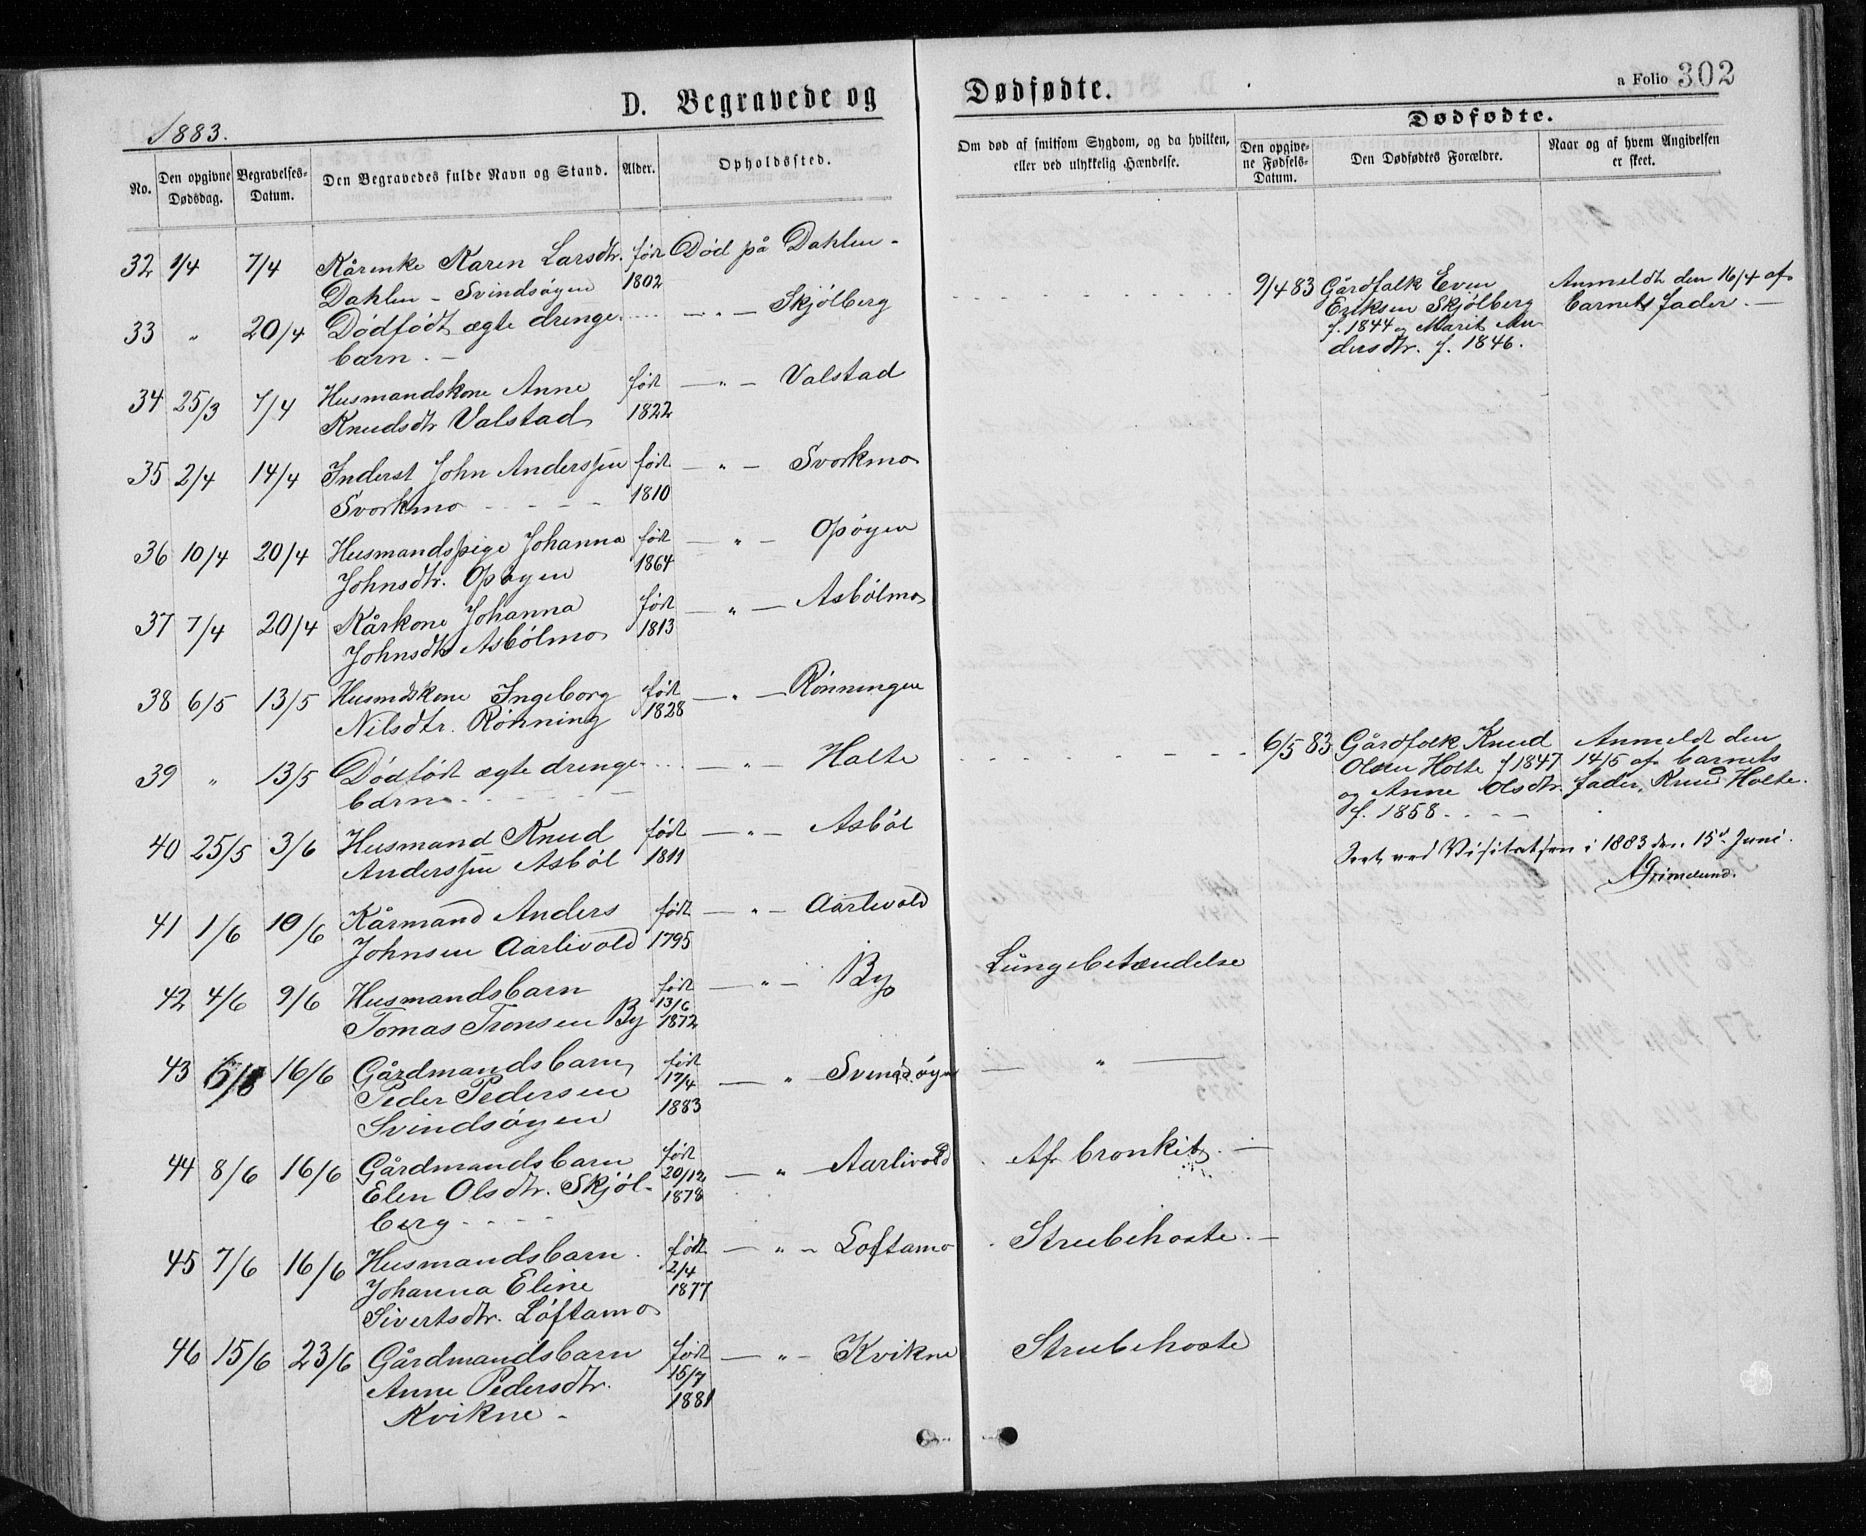 D. Begravede og Dødfødte.
a Folio 302
1883.
No.
Den opgivne Dødsdag.
Begravelses-Datum.
Den Begravedes fulde Navn og Stand.
Alder.
Opholdssted.
Om død af smitsom Sygdom, og da hvilken, eller ved ulykkelig Hændelse.
Dødfødte.
Den opgivne Fødsels-Datum.
Den Dødfødtes Forældre.
Naar og af hvem Angivelsen er skeet.
32 1/4 7/4 Kårenke Karen Larsdtr. født Død på Dahlen -
Dahlen - Svindsøgen 1802
33 " 20/4 Dødfødt ægte drenge- ..... — " — Skjølberg
barn. —
9/4 83 Gårdfolk Even Anmeldt den 16/4 af
Eriksen Skjølberg barnets fader. —
f. 1844 og Marit An
dersdtr. f. 1846.
34 25/3 7/4 Husmandskone Anne født — " — Valstad
Knudsdtr Valstad 1822
35 2/4 14/4 Inderst John Anderssen født — " — Svorkmo
Svorkmo - - - - 1810
36 10/4 20/4 Husmandspige Johanna født — " — Opøyen
Johnsdtr. Opøyen 1864
37 7/4 20/4 Kårkone Johanna født — " — Asbølmo
Johnsdtr Asbølmo 1813
38 6/5 13/5 Husmdskone Ingeborg født — " — Rønningen
Nilsdtr. Rønning 1828
39 " 13/5 Dødfødt ægte drenge- .... — " — Holte
barn. - - - -
6/5 83 Gårdfolk Knud Anmeldt den
Olsen Holte f 1847 14/5 af barnets
og Anne Olsdtr. fader, Knud Holte.
f. 1858. - - -
40 25/5 3/6 Husmand Knud født — " — Asbøl
Anderssen Asbøl 1811
Seet ved Visitatsen i 1883 den 15d. Juni.
AGrimelund.
41 1/6 10/6 Kårmand Anders født — " — Aarlivold
Johnsen Aarlivold 1795
42 4/6 9/6 Husmandsbarn født — " — By Lungebetændelse
Tomas Tronsen By 13/6 1872
43 6/6 16/6 Gårdmandsbarn født — " — Svindsøgen — " —
Peder Pedersen 17/4
Svindsøgen 1883
44 8/6 16/6 Gårdmandsbarn født — " — Aarlivold Af bronkit. —
Elen Olsdtr. Skjøl- 20/12
berg - - - - 1878
45 7/6 16/6 Husmandsbarn født — " — Loftamo Strubehoste. —
Johanna Eline 2/4
Sivertsdtr. Løftamo 1877
46 15/6 23/6 Gårdmandsbarn født — " — Kvikne Strubehoste
Anne Pedersdtr. 15/7
Kvikne - 1881